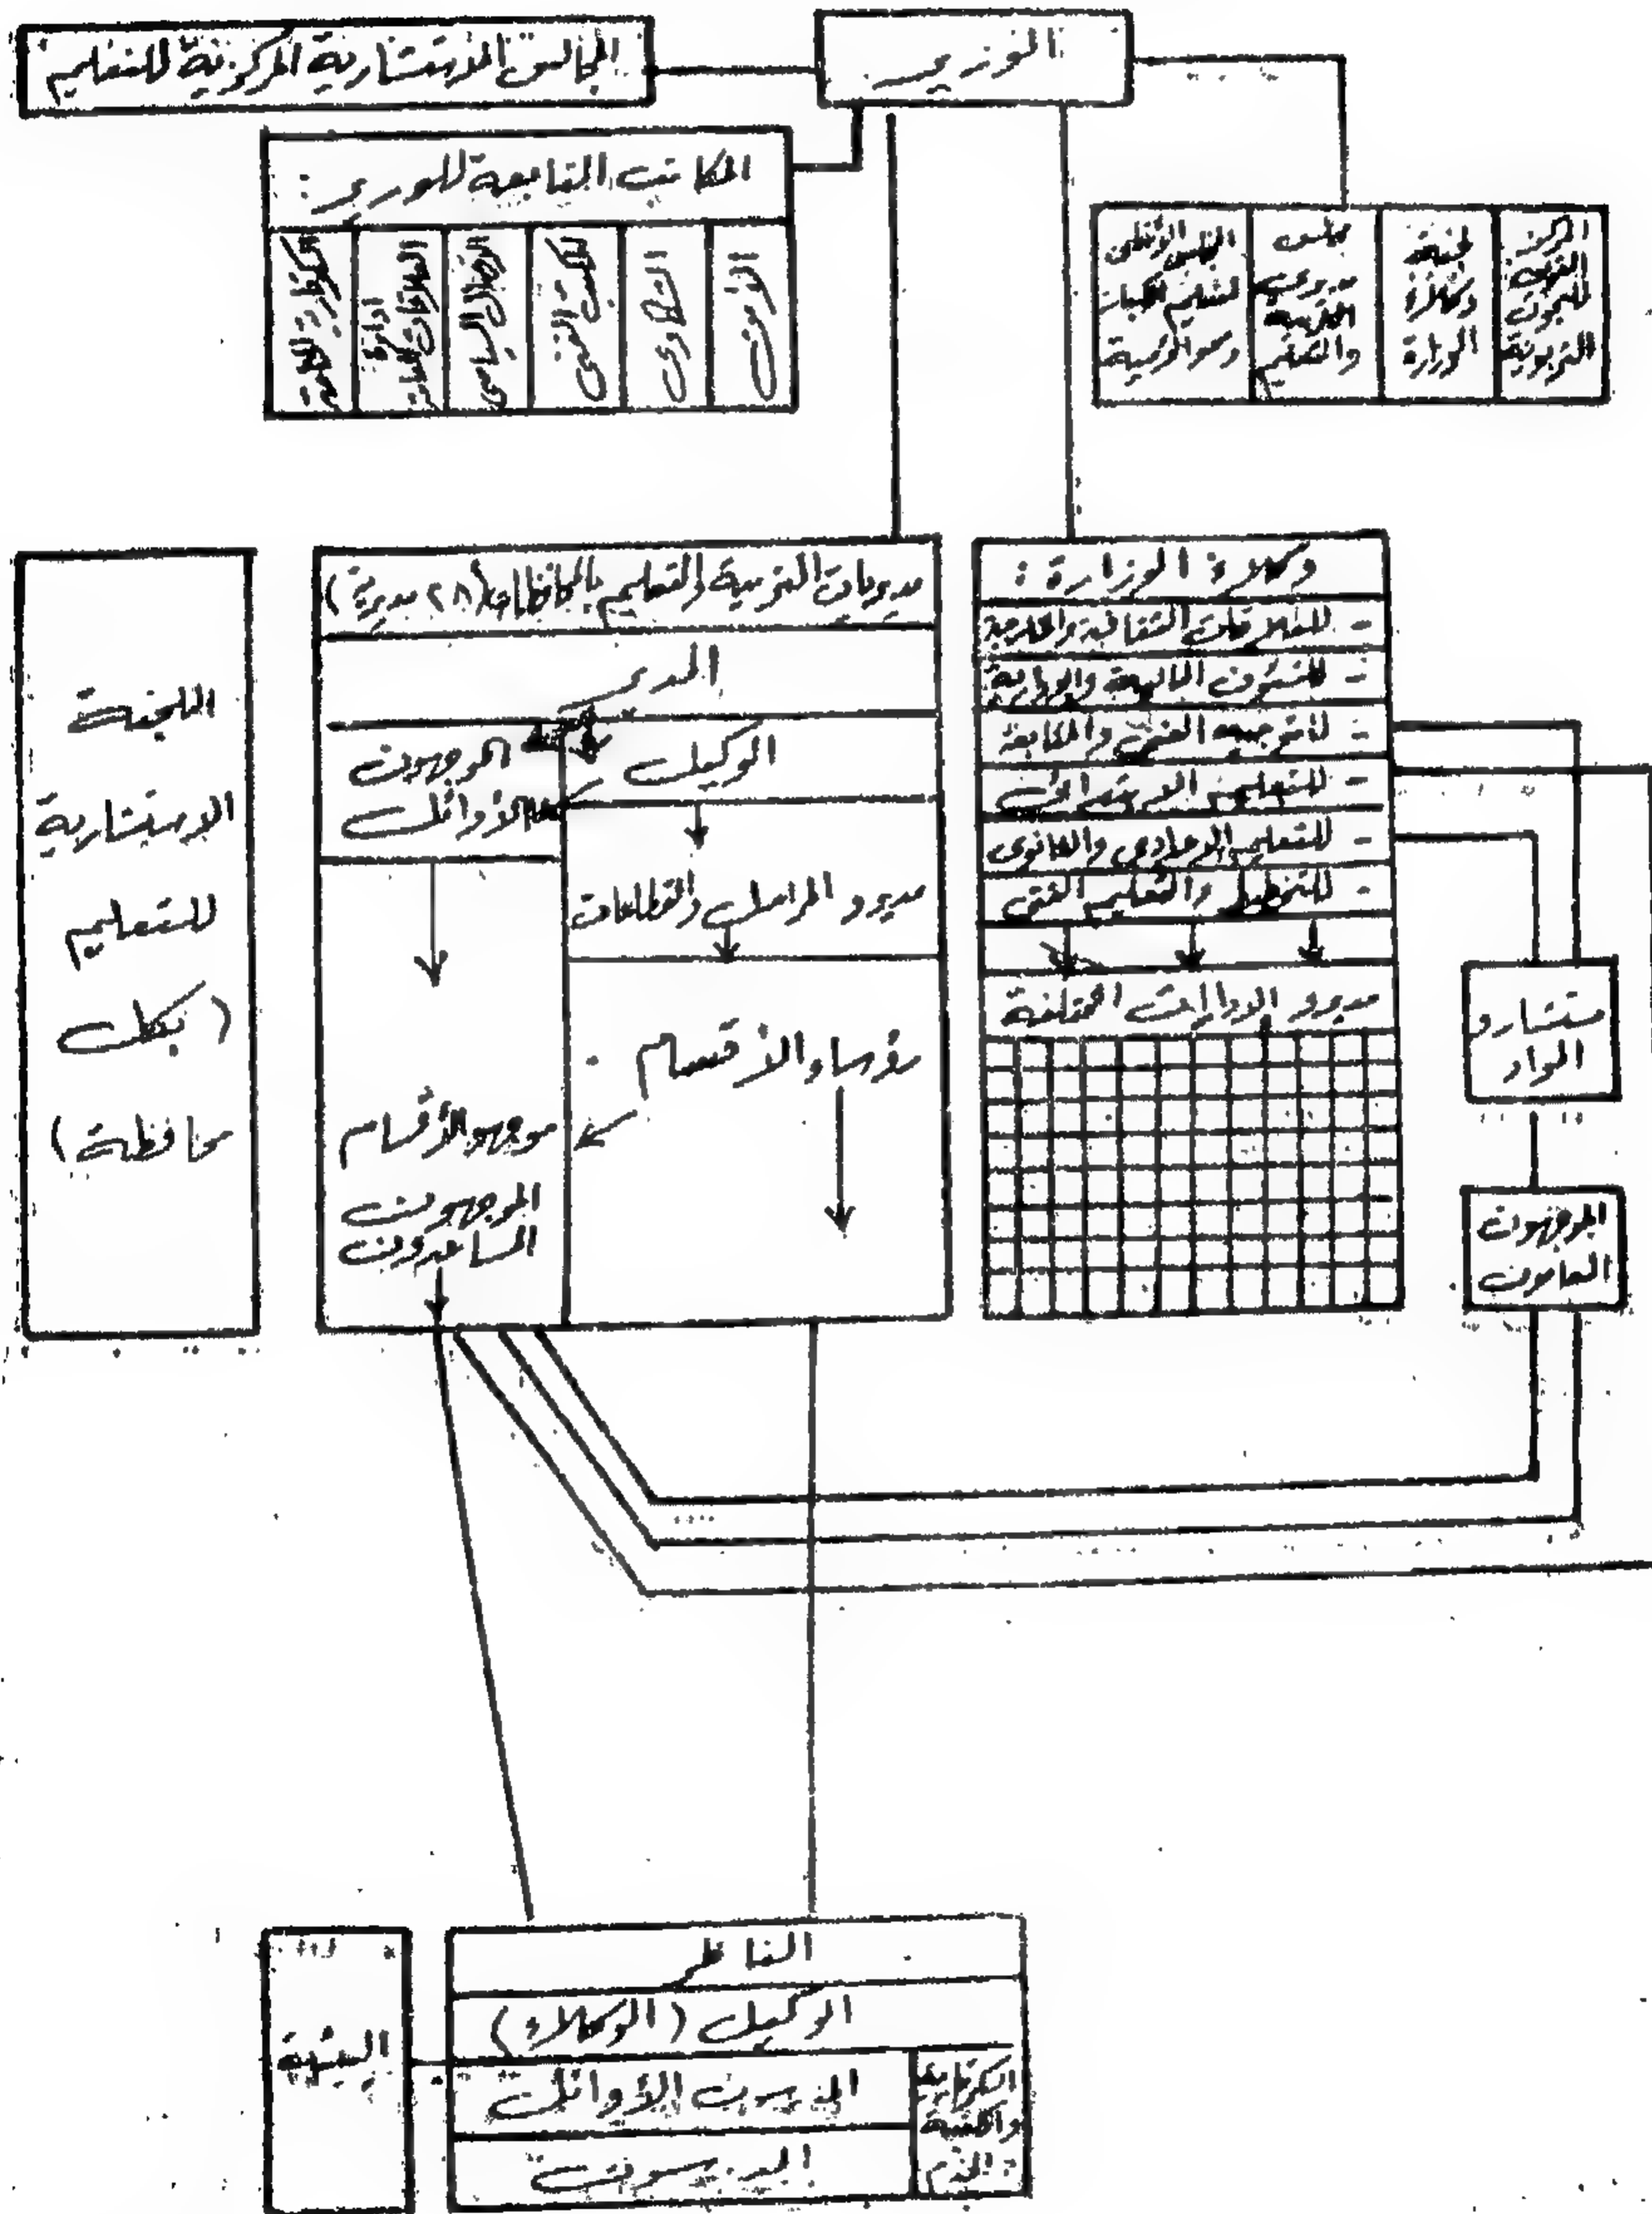 الوزير
المجالس الاستشارية المركزية للتعليم
المكاتب التابعة للوزير :
الأمن
الشكاوى
المكتب الفنى
الاتصال السياسى
إدارة
العلاقات العامة
السكرتارية
المركز
القومى
للبحوث
التربوية
لجنة
وكلاء
الوزارة
مجلس
مديرى
التربية
والتعليم
المجلس الأعلى
لتعليم الكبار
ومحو الأمية
وكلاء الوزارة :
- للعلاقات الثقافية والخارجية
- للشئون المالية والإدارية
- للتوجيه الفنى والمتابعة
- للتعليم الابتدائى
- للتعليم الاعدادى والثانوى
- للتخطيط والتعليم الفنى
مديرو الادارات المختلفة
مستشارو
المواد
الموجهون
العامون
مديريات التربية والتعليم بالمحافظات (٢٨ مديرية)
المدير
الوكيل
الموجهون
الأوائل
مديرو المراحل والقطاعات
رؤساء الأقسام
موجهو الأقسام
الموجهون
المساعدون
اللجنة
الاستشارية
للتعليم
(بكل
محافظة)
الناظر
الوكيل (الوكلاء)
المدرسون الأوائل
المدرسون
السكرتارية
والمكتبة
البيئة